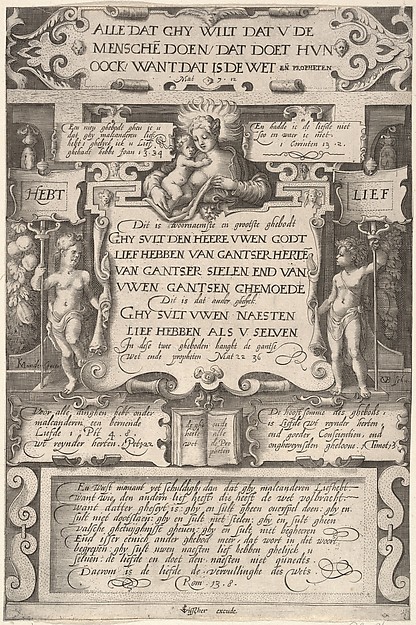 ALLE DAT GHY WILT DAT V DE
MENSCHĒ DOEN, DAT DOET HVN
OOCK, WANT DAT IS DE WET EÑ PROPHETEN
Mat 7. 12
Een nieu ghebodt gheve ic u
dat ghy malcanderen lief
hebt ghelyck ick u lief
ghehadt hebbe Joan 13. 34
En hadde ic de liefde niet
soo en waer ic niet.
1 Corinten 13. 2.
HEBT
LIEF
Dit is t'voornaemste en grootste ghebodt
GHY SVLT DEN HEERE VWEN GODT
LIEF HEBBEN VAN GANTSER HERTE
VAN GANTSER SIELEN END VAN
VWEN GANTSEN GHEMOEDE
Dit is dat ander ghelyck.
GHY SVLT VWEN NAESTEN
LIEF HEBBEN ALS V SELVEN
In dese twee gheboden hanght de gantse
Wet ende propheten Mat 22 36
Voor alle dinghen hebt onder
malcanderen een bernende
Liefde 1 Pit 4. 8
wt reynder herten. 1 Pet 1 22
De hooft somme des ghebods
is Liefde wt reynder herten,
end goeder Conscientien, end
ongheveynsden gheloove. 1 Timot 1 5
En weest niemant yet schuldigh dan dat ghy malcanderen Liefhebt.
Want wie den andern lief heeft die heeft de wet volbracht.
want datter gheseyt is: ghy en sult gheen overspel doen: ghy en
sult niet dootslaen: ghy en sult niet stelen: ghy en sult gheen
valsche ghetuyghnisse gheven: ghy en sult niet begheeren
End isser eenich ander ghebod meer, dat wort in dit woort
begrepen: ghy sult uwen naesten lief hebben ghelyck u
selven: de liefde en doet den naesten niet quaedts.
Daerom is de liefde de vervullinghe des Wets
Rom 13. 8.
CJVisscher excude.